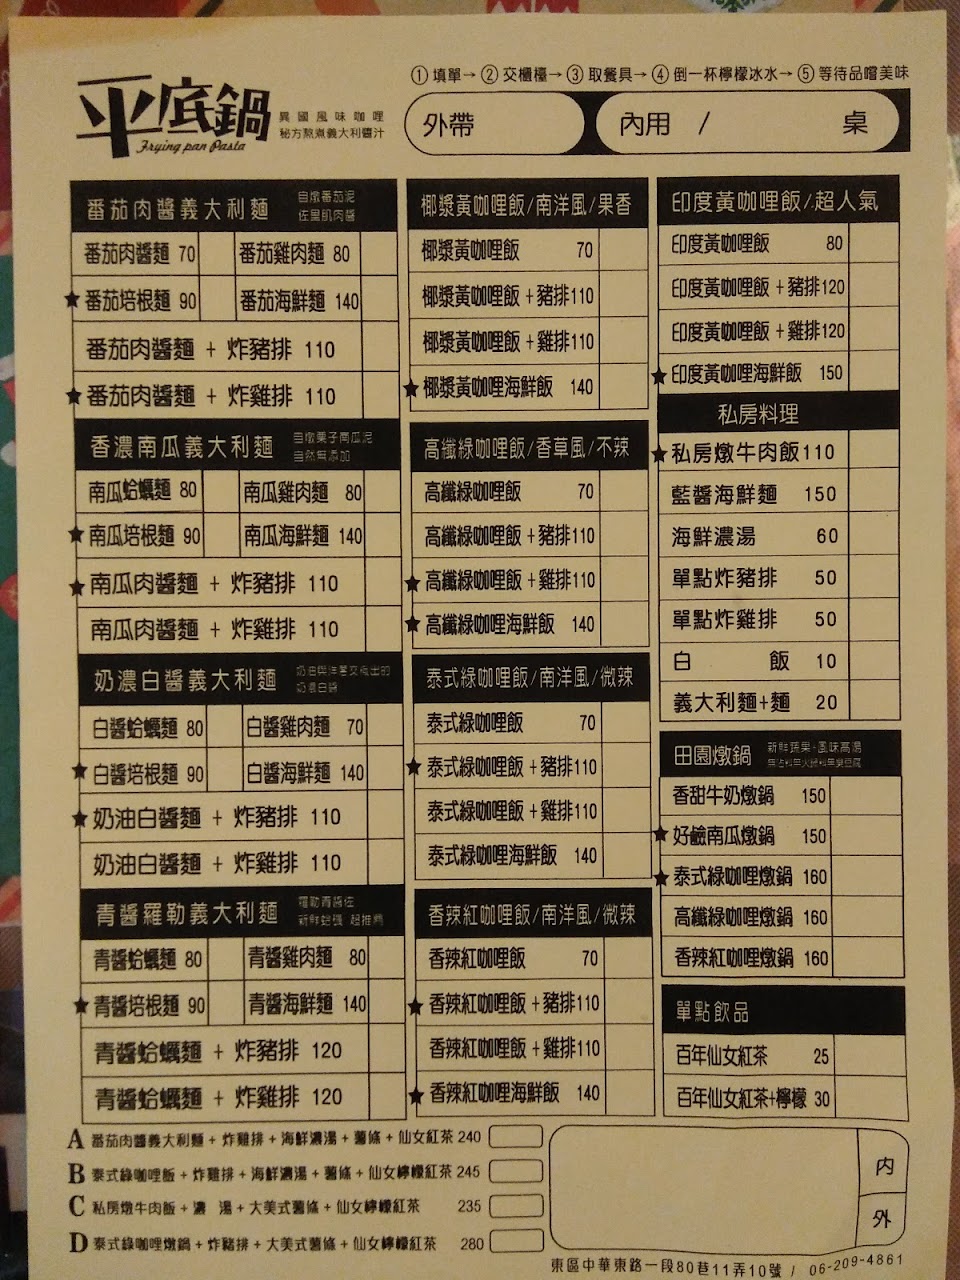 平底鍋
Frying pan Pasta
異國風味咖哩
秘方熬煮義大利醬汁
①填單→②交櫃檯→③取餐具→④倒一杯檸檬冰水→⑤等待品嚐美味
外帶
內用 / 桌
番茄肉醬義大利麵
自燉番茄泥
佐里肌肉醬
番茄肉醬麵 70 番茄雞肉麵 80
★番茄培根麵 90 番茄海鮮麵 140
番茄肉醬麵 + 炸豬排 110
★番茄肉醬麵 + 炸雞排 110
香濃南瓜義大利麵
自燉栗子南瓜泥
自然無添加
南瓜蛤蠣麵 80 南瓜雞肉麵 80
★南瓜培根麵 90 南瓜海鮮麵 140
★南瓜肉醬麵 + 炸豬排 110
南瓜肉醬麵 + 炸雞排 110
奶濃白醬義大利麵
奶油與洋蔥交織出的
奶濃白醬
白醬蛤蠣麵 80 白醬雞肉麵 70
★白醬培根麵 90 白醬海鮮麵 140
★奶油白醬麵 + 炸豬排 110
奶油白醬麵 + 炸雞排 110
青醬羅勒義大利麵
羅勒青醬佐
新鮮蛤蠣 超推薦
青醬蛤蠣麵 80 青醬雞肉麵 80
★青醬培根麵 90 青醬海鮮麵 140
青醬蛤蠣麵 + 炸豬排 120
青醬蛤蠣麵 + 炸雞排 120
椰漿黃咖哩飯/南洋風/果香
椰漿黃咖哩飯 70
椰漿黃咖哩飯+豬排110
椰漿黃咖哩飯+雞排110
★椰漿黃咖哩海鮮飯 140
高纖綠咖哩飯/香草風/不辣
高纖綠咖哩飯 70
高纖綠咖哩飯+豬排110
★高纖綠咖哩飯+雞排110
★高纖綠咖哩海鮮飯 140
泰式綠咖哩飯/南洋風/微辣
泰式綠咖哩飯 70
★泰式綠咖哩飯+豬排110
泰式綠咖哩飯+雞排110
泰式綠咖哩海鮮飯 140
香辣紅咖哩飯/南洋風/微辣
香辣紅咖哩飯 70
★香辣紅咖哩飯+豬排110
香辣紅咖哩飯+雞排110
★香辣紅咖哩海鮮飯 140
印度黃咖哩飯/超人氣
印度黃咖哩飯 80
印度黃咖哩飯+豬排120
印度黃咖哩飯+雞排120
★印度黃咖哩海鮮飯 150
私房料理
★私房燉牛肉飯110
藍醬海鮮麵 150
海鮮濃湯 60
單點炸豬排 50
單點炸雞排 50
白 飯 10
義大利麵+麵 20
田園燉鍋
新鮮蔬果+風味高湯
香甜牛奶燉鍋 150
★好鹼南瓜燉鍋 150
★泰式綠咖哩燉鍋 160
高纖綠咖哩燉鍋 160
香辣紅咖哩燉鍋 160
單點飲品
百年仙女紅茶 25
百年仙女紅茶+檸檬 30
A 番茄肉醬義大利麵 + 炸雞排 + 海鮮濃湯 + 薯條 + 仙女紅茶 240
B 泰式綠咖哩飯 + 炸雞排 + 海鮮濃湯 + 薯條 + 仙女檸檬紅茶 245
C 私房燉牛肉飯 + 濃 湯 + 大美式薯條 + 仙女檸檬紅茶 235
D 泰式綠咖哩燉鍋 + 炸豬排 + 大美式薯條 + 仙女檸檬紅茶 280
內
外
東區中華東路一段80巷11弄10號 / 06-209-4861